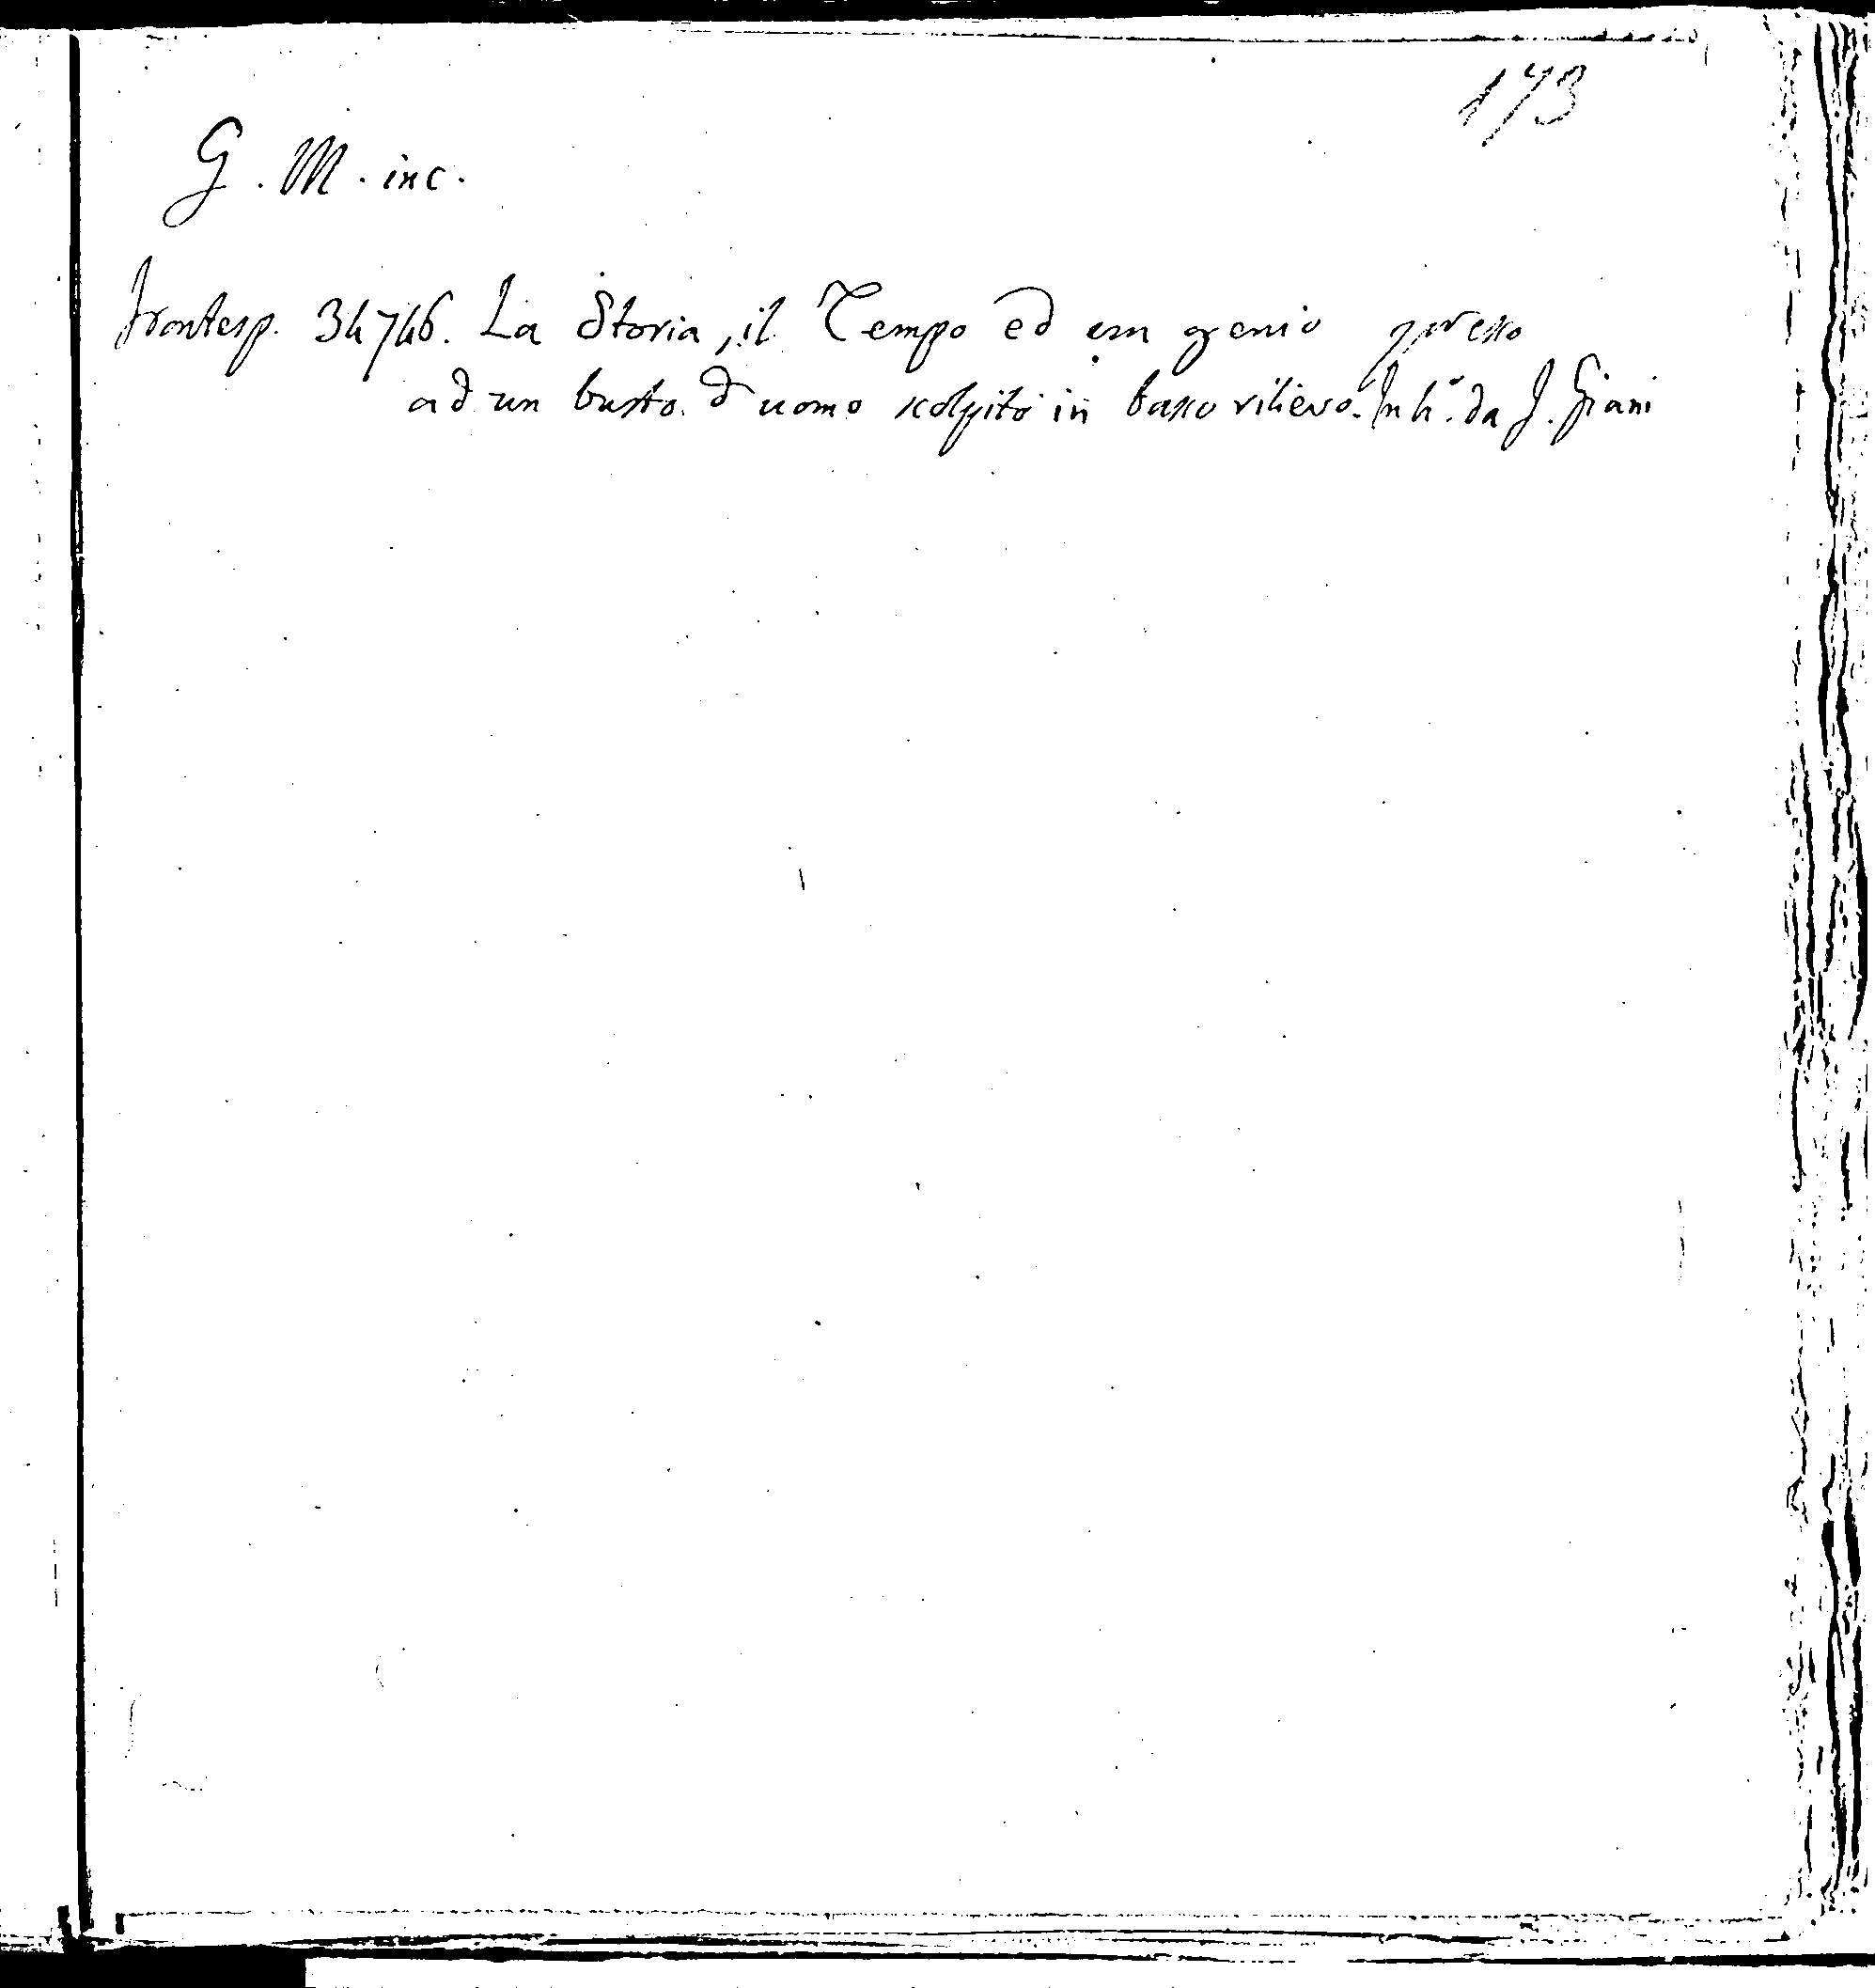 173
G. M. inc.
frontesp. 34746. La Storia, il Tempo ed un genio presso
ad un busto d'uomo scolpito in basso rilievo. In 4.° da F. Giani